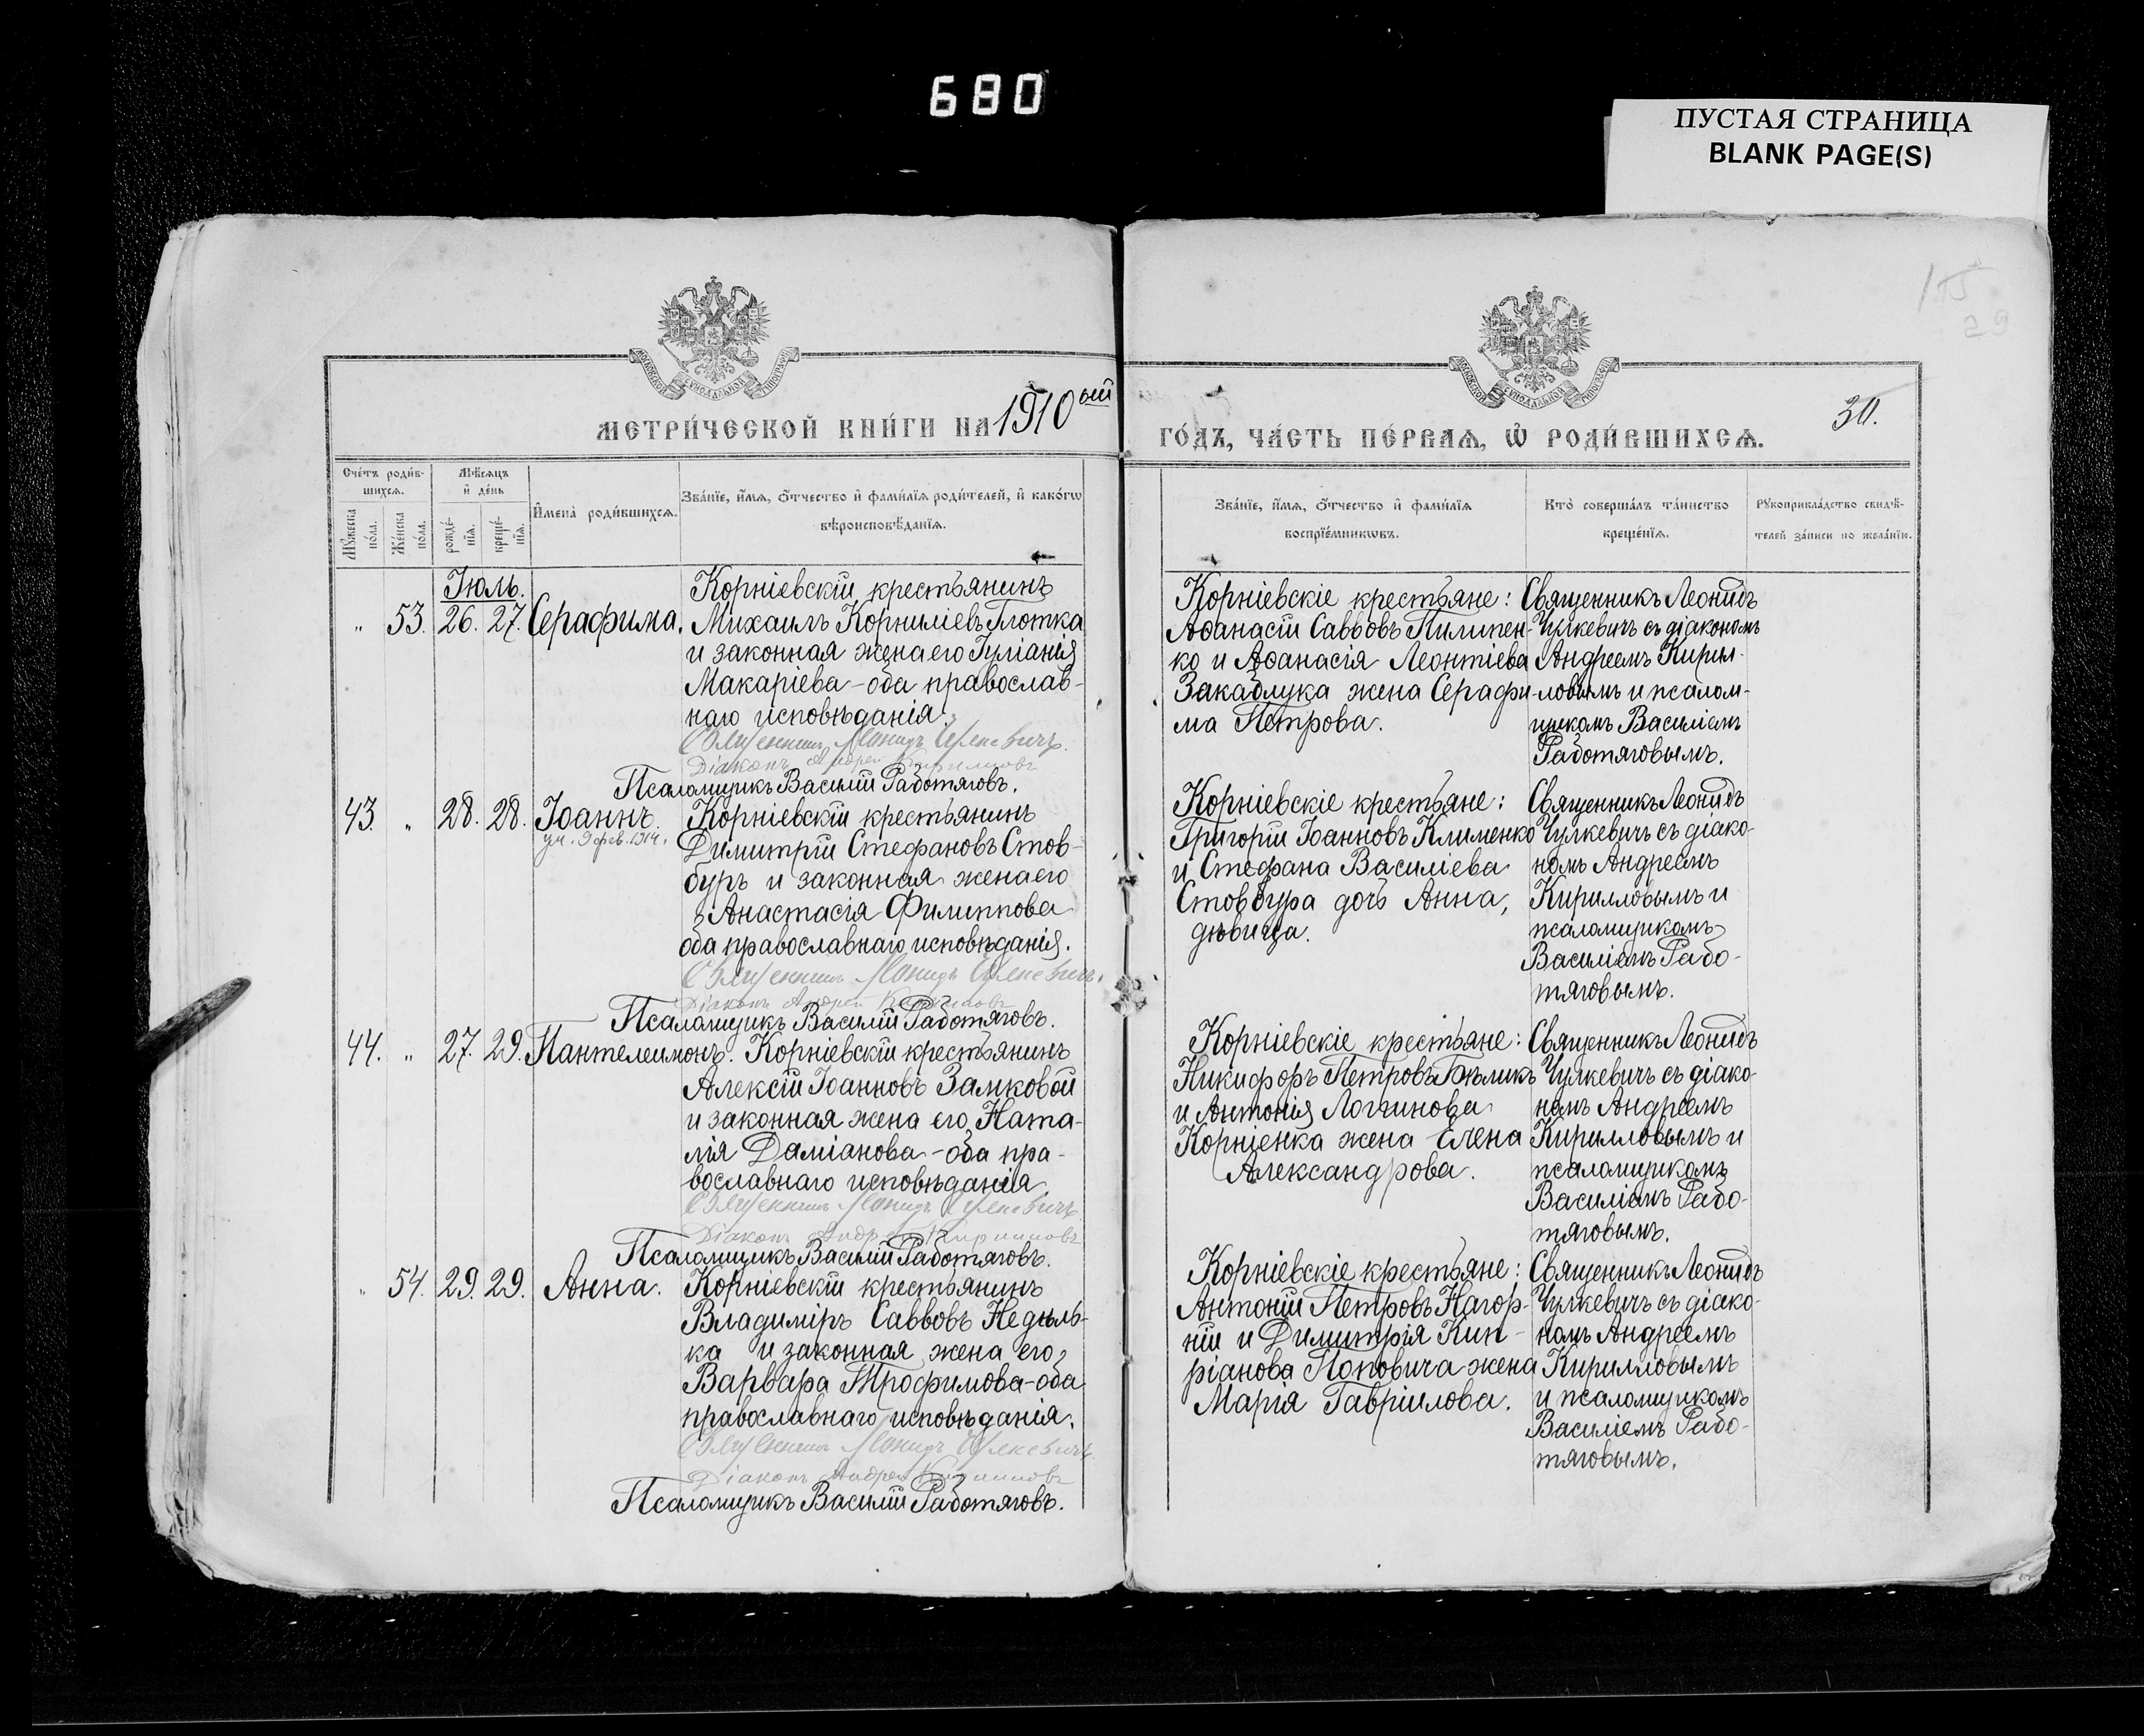 680
ПУСТАЯ СТРАНИЦА
BLANK PAGE(S)
29
МЕТРИ́ЧЕСКОЙ КНИ́ГИ НА 1910ый
ГО́ДЪ, ЧА́СТЬ ПЕ́РВАѦ, Ѡ҆ РОДИ́ВШИХСѦ.
30.
Сче́тъ роди́в-
шихсѧ.
Мѣ́сѧцъ
и҆ де́нь
Мꙋ́жеска
по́ла.
Же́нска
по́ла.
рожде́-
нїѧ.
креще́-
нїѧ.
И҆мена̀ роди́вшихсѧ.
Зва́нїе, и҆́мѧ, ѻ҆́тчество и҆ фами́лїѧ роди́телей, и҆ како́гѡ
вѣроисповѣ́данїѧ.
Зва́нїе, и҆́мѧ, ѻ҆́тчество и҆ фами́лїѧ
воспрїе́мникѡвъ.
Кто̀ соверша́лъ та́инство
креще́нїѧ.
Рꙋкоприкла́дство свидѣ́-
телей за́писи по жела́нїю.
Іюль.
" 53. 26. 27. Серафима.
Корніевскій крестьянинъ
Михаилъ Корниліевъ Глотка
и законная жена его Іуліанія
Макаріева - оба православ-
наго исповѣданія.
Священникъ Леонидъ Чулкевичъ.
Діаконъ Андрей Кирилловъ
Псаломщикъ Василій Работяговъ.
Корніевскіе крестьяне:
Аѳанасій Саввовъ Пилипен-
ко и Аѳанасія Леонтіева
Закаблука жена Серафи-
ма Петрова.
Священникъ Леонидъ
Чулкевичъ съ діакономъ
Андреемъ Кирил-
ловымъ и псалом-
щикомъ Василіемъ
Работяговымъ.
43. " 28. 28. Іоаннъ.
ум. 9 фев. 1914.
Корніевскій крестьянинъ
Димитрій Стефановъ Стов-
буръ и законная жена его
Анастасія Филиппова
оба православнаго исповѣданія.
Священникъ Леонидъ Чулкевичъ.
Діаконъ Андрей Кирилловъ
Псаломщикъ Василій Работяговъ.
Корніевскіе крестьяне:
Григорій Іоанновъ Клименко
и Стефана Василіева
Стовбура дочь Анна,
дѣвица.
Священникъ Леонидъ
Чулкевичъ съ діако-
номъ Андреемъ
Кирилловымъ и
псаломщикомъ
Василіемъ Рабо-
тяговымъ.
44. " 27. 29. Пантелеимонъ.
Корніевскій крестьянинъ
Алексій Іоанновъ Замковой
и законная жена его Ната-
лія Даміанова - оба пра-
вославнаго исповѣданія.
Священникъ Леонидъ Чулкевичъ
Діаконъ Андрей Кирилловъ
Псаломщикъ Василій Работяговъ.
Корніевскіе крестьяне:
Никифоръ Петровъ Бѣликъ
и Антонія Логгинова
Корніенка жена Елена
Александрова.
Священникъ Леонидъ
Чулкевичъ съ діако-
номъ Андреемъ
Кирилловымъ и
псаломщикомъ
Василіемъ Рабо-
тяговымъ.
" 54. 29. 29. Анна.
Корніевскій крестьянинъ
Владиміръ Саввовъ Недѣль-
ка и законная жена его
Варвара Трофимова - оба
православнаго исповѣданія.
Священникъ Леонидъ Чулкевичъ
Діаконъ Андрей Кирилловъ
Псаломщикъ Василій Работяговъ.
Корніевскіе крестьяне:
Антоній Петровъ Нагор-
ній и Димитрія Кип-
ріанова Поповича жена
Марія Гавріилова.
Священникъ Леонидъ
Чулкевичъ съ діако-
номъ Андреемъ
Кирилловымъ
и псаломщикомъ
Василіемъ Рабо-
тяговымъ.